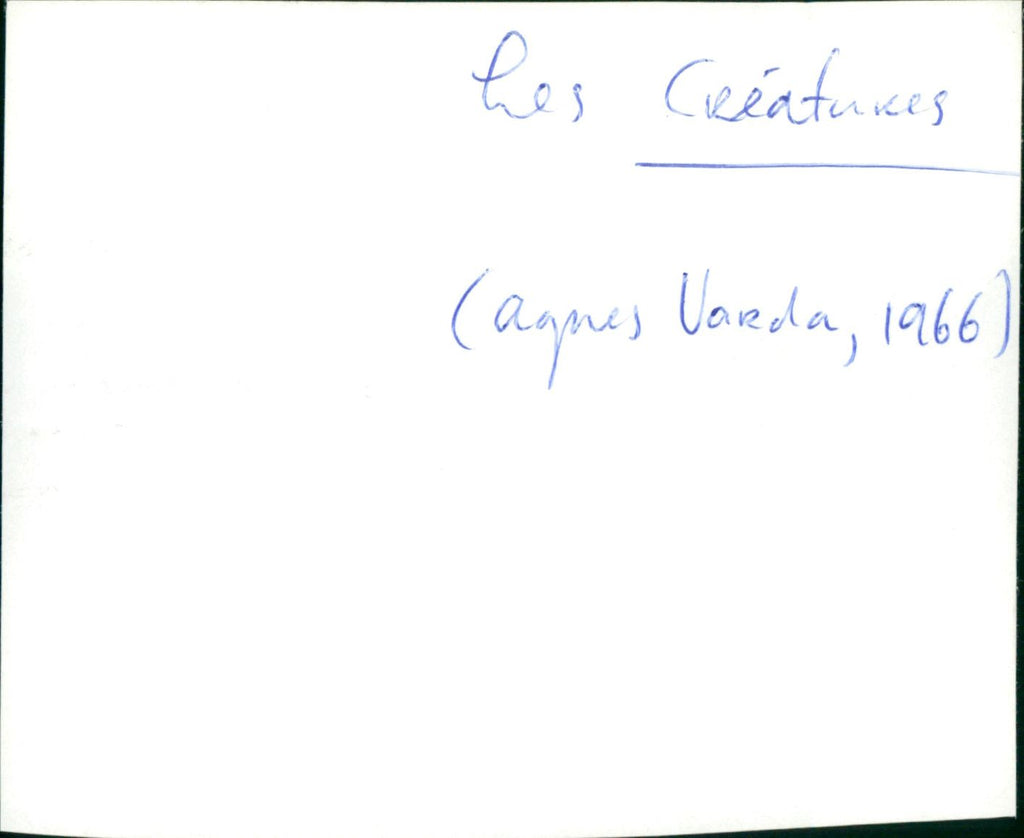 Les Créatures
(Agnes Varda, 1966)